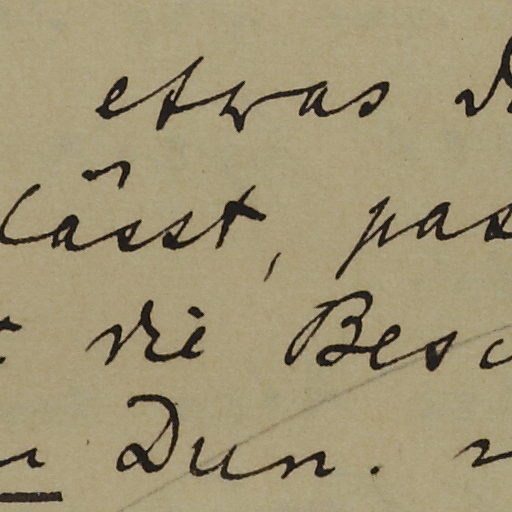 etwas d
lässt, pas
t die Besc
Dun.